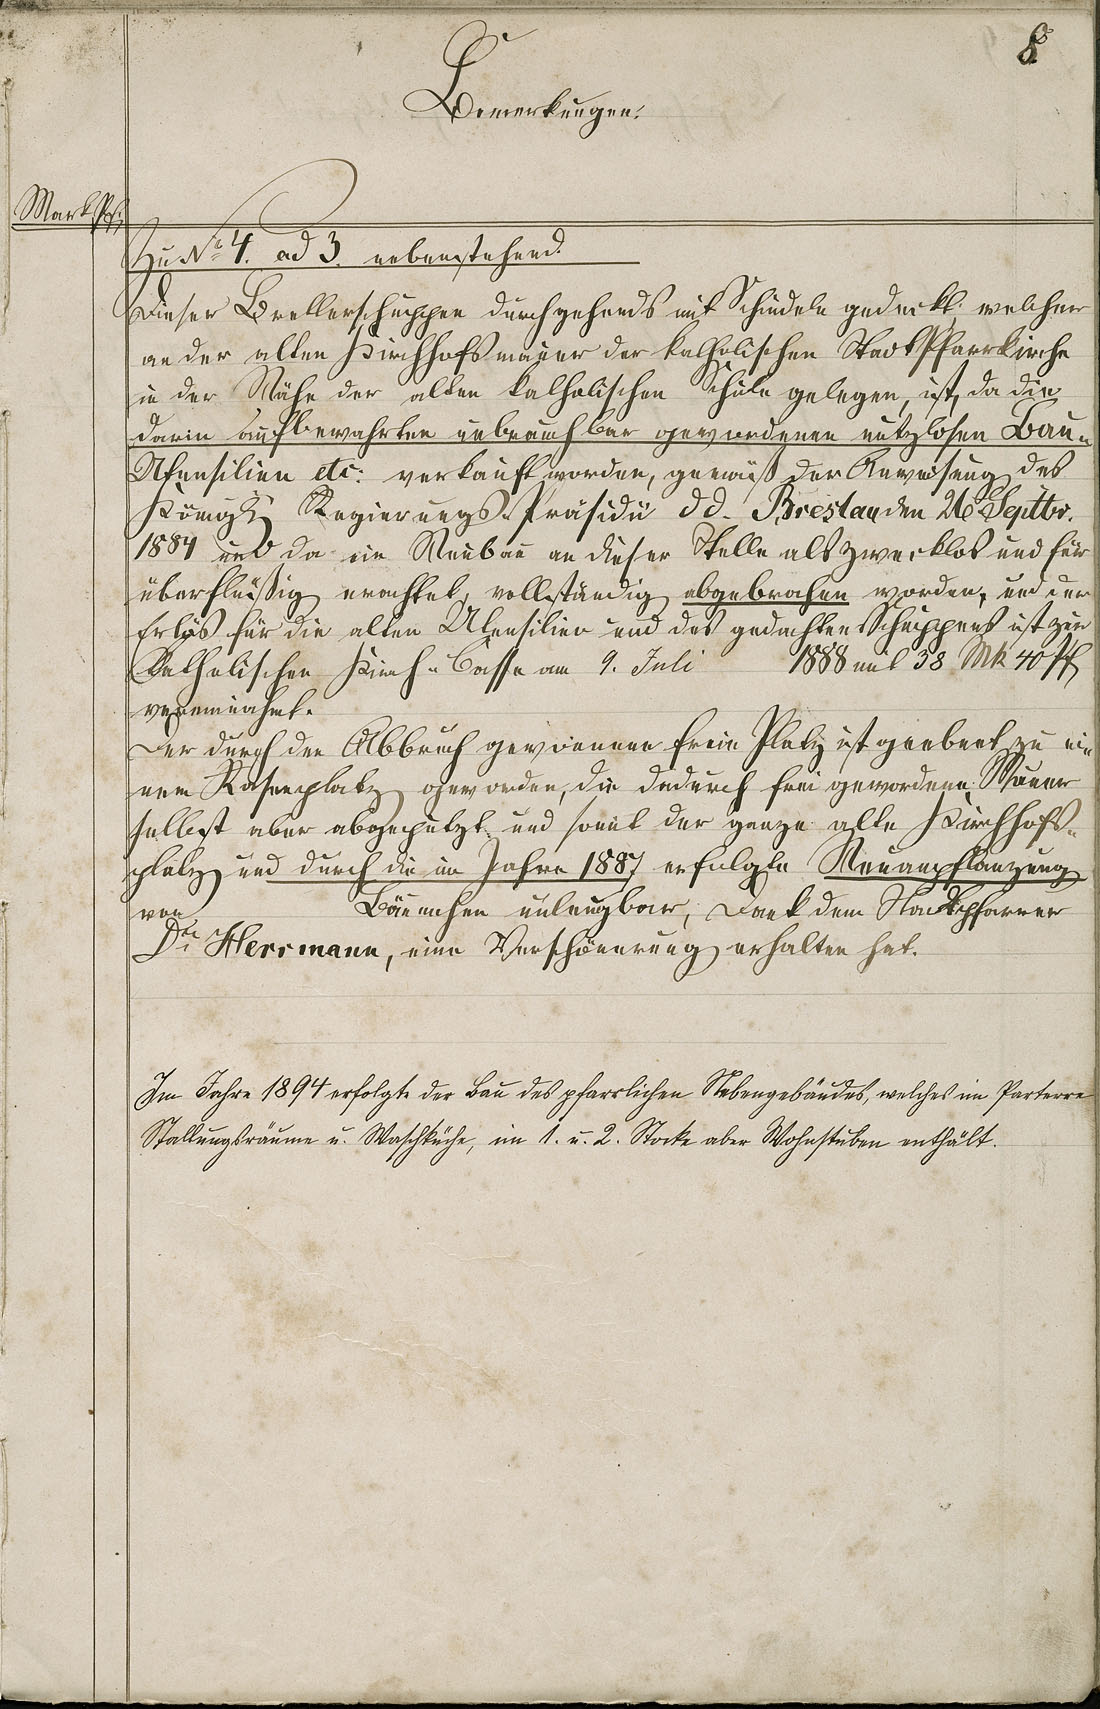 8
Bemerkungen.
Mark Pf.
Zu No 4. ad 3. nebenstehend.
Dieser Bretterschuppen durchgehends mit Schindeln gedeckt welcher
an der alten Kirchhofsmauer der katholischen Stadtpfarrkirche
in der Nähe der alten katholischen Schule gelegen, ist, da die
darin aufbewahrten unbrauchbar gewordenen nutzlosen Bau-
Utensilien etc: verkauft worden, gemäß der Anweisung des
Königl. Regierungs-Präsidii dd. Breslau den 26 Septbr.
1884 und da ein Neubau an dieser Stelle als zwecklos und für
überflüssig erachtet, vollständig abgebrochen worden, und der
Erlös für die alten Utensilien und des gedachten Schuppens ist zur
Katholischen Kirch-Casse am 9. Juli 1888 mit 38 Mk 40 Pf
vereinnahmt.
Der durch den Abbruch gewonnene freie Platz ist geebnet zu ei
nem Rasenplatz geworden, die dadurch frei gewordene Mauer
selbst aber abgeputzt und somit der ganze alte Kirchhofs-
platz und durch die im Jahre 1887 erfolgte Neuanpflanzung
von Bäumchen unleugbar, Dank dem Stadtpfarrer
Dr. Herrmann, eine Verschönerung erhalten hat.
Im Jahre 1894 erfolgte der Bau des pfarrlichen Nebengebäudes, welches im Parterre
Stallungsräume u. Waschküche, im 1. u. 2. Stocke aber Wohnstuben enthält.